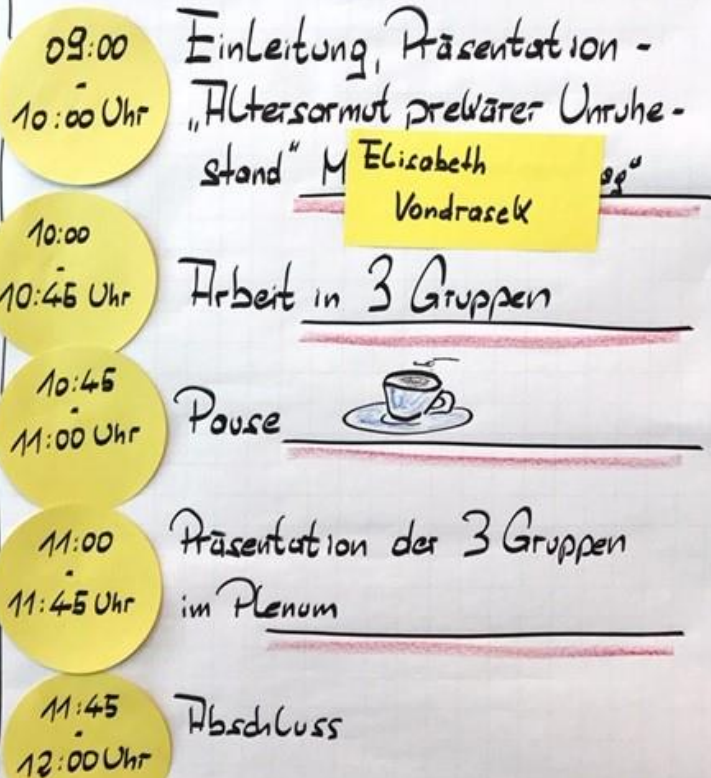 09:00
-
10:00 Uhr
Einleitung, Präsentation -
„Altersarmut prekärer Unruhe-
stand“ M
Elisabeth
Vondrasek
10:00
-
10:45 Uhr
Arbeit in 3 Gruppen
10:45
-
11:00 Uhr
Pause
11:00
-
11:45 Uhr
Präsentation der 3 Gruppen
im Plenum
11:45
-
12:00 Uhr
Abschluss